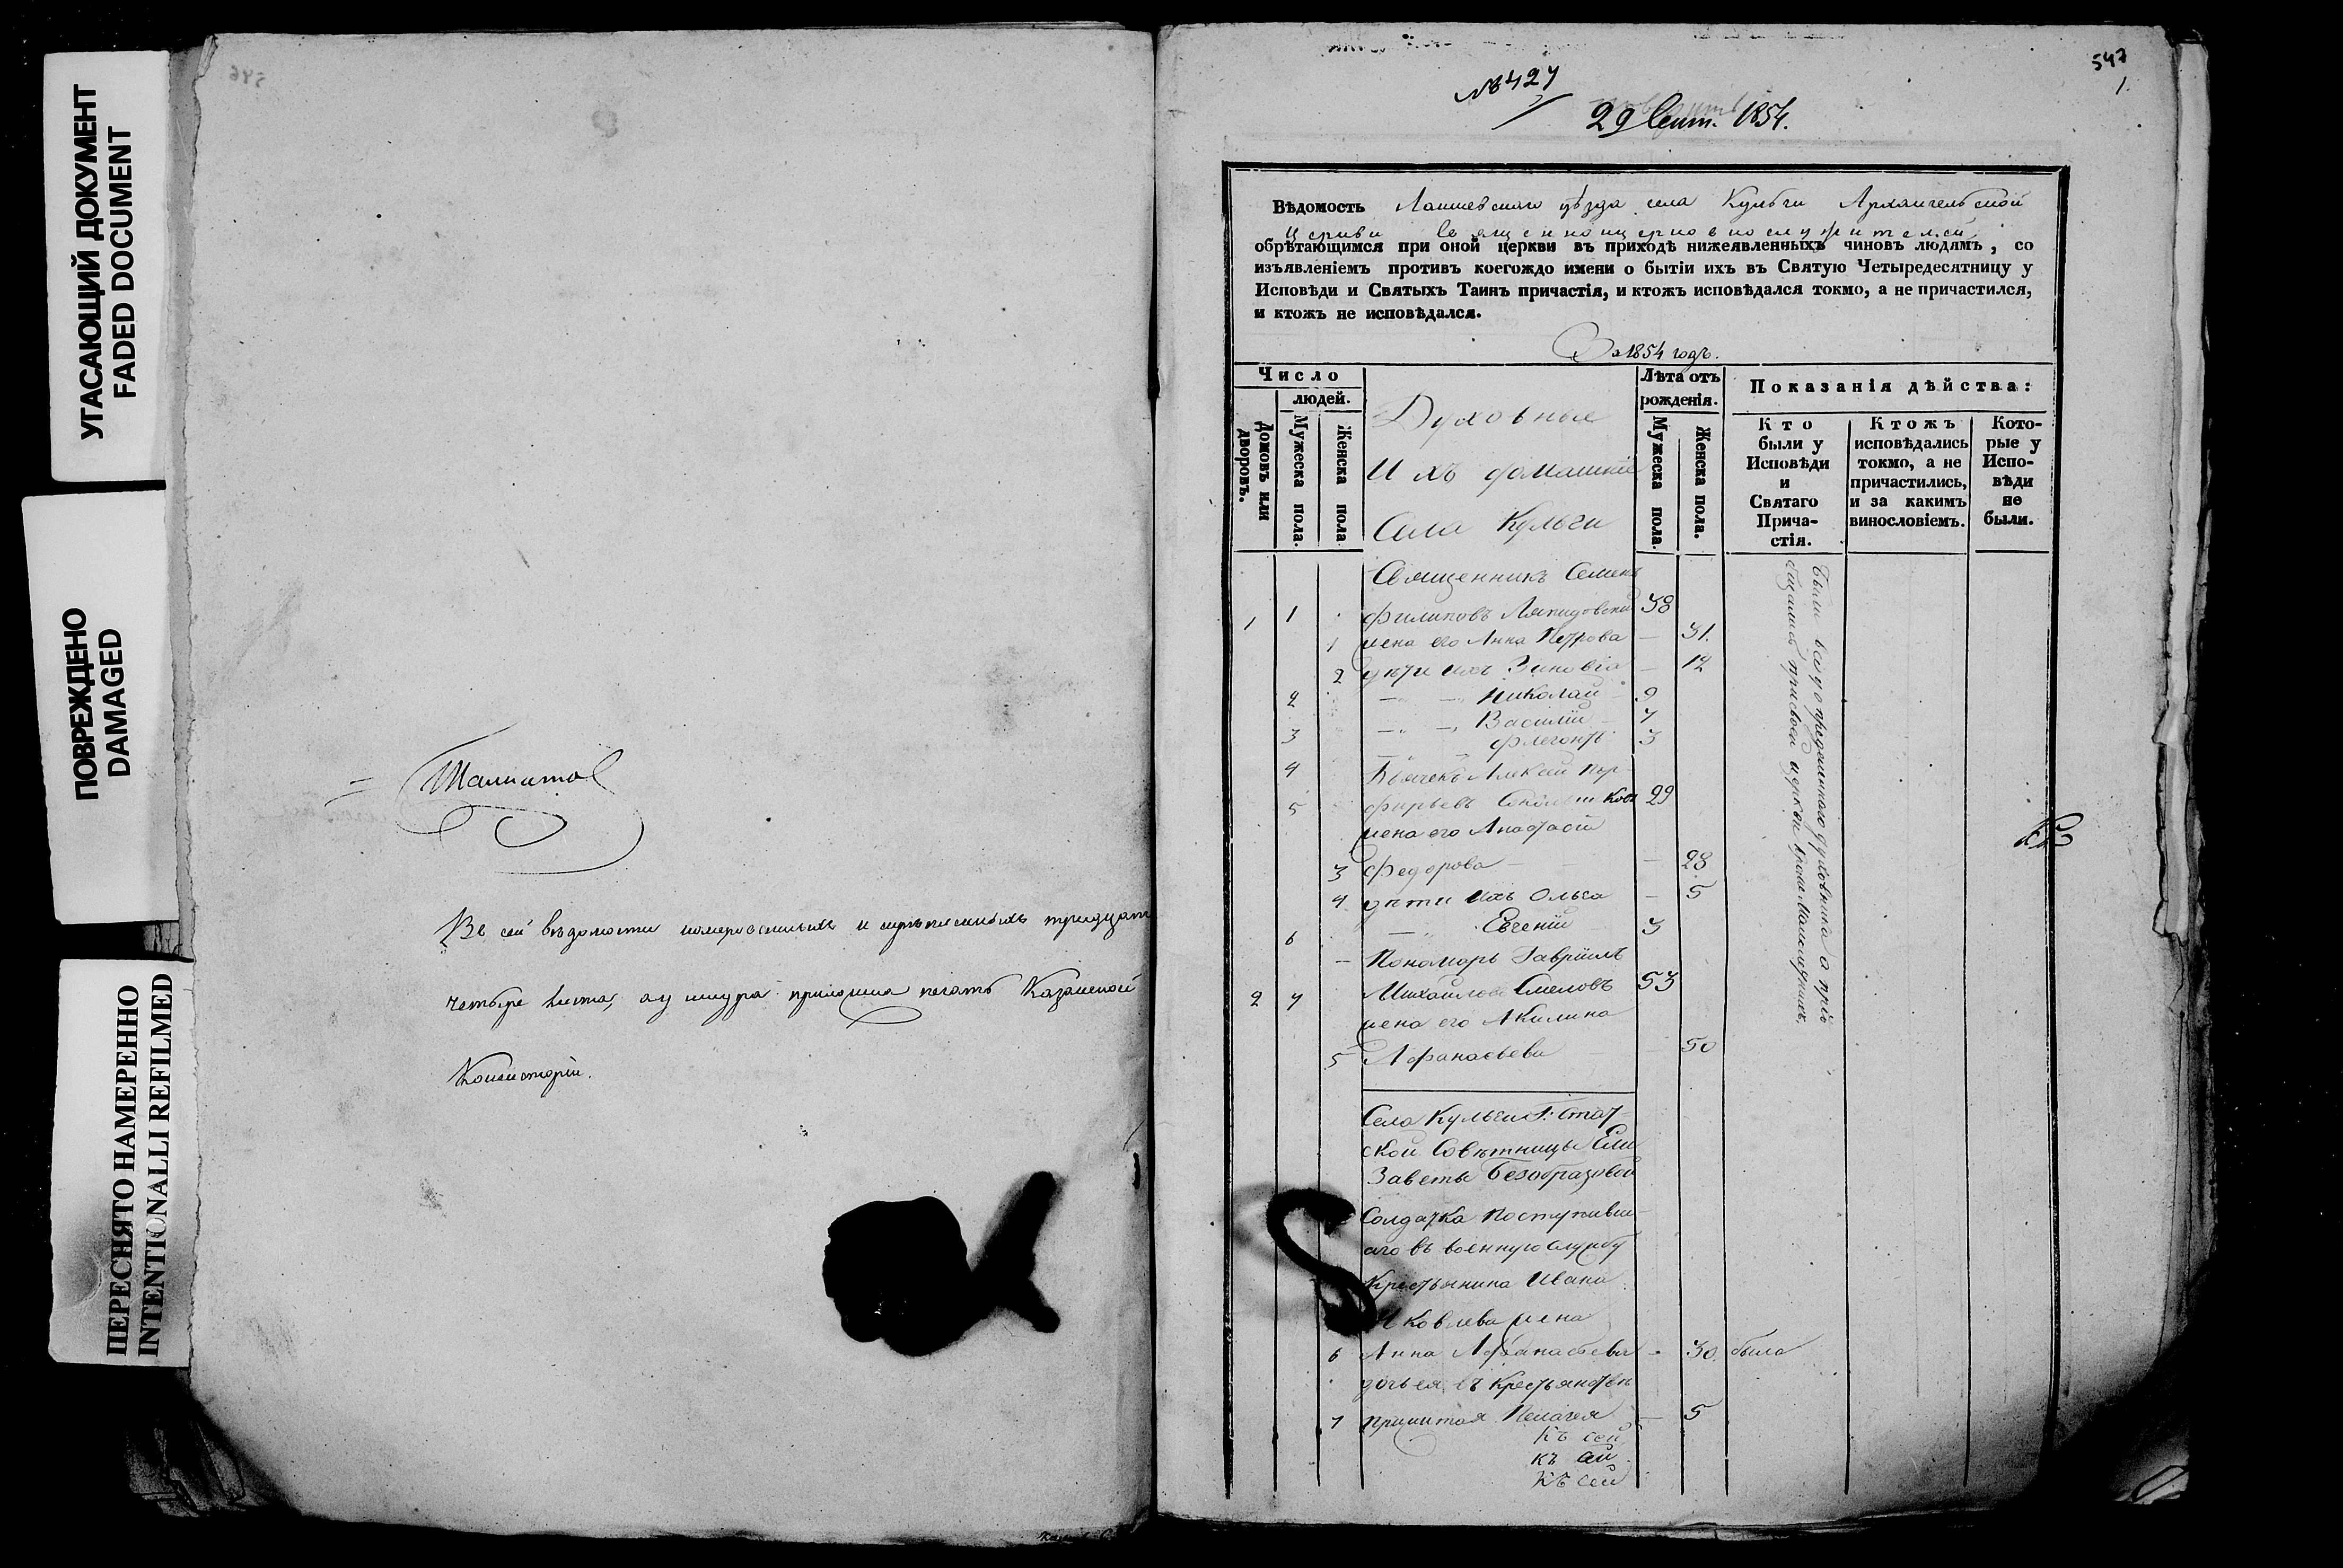 УГАСАЮЩИЙ ДОКУМЕНТ
FADED DOCUMENT
ПОВРЕЖДЕНО
DAMAGED
ПЕРЕСНЯТО НАМЕРЕННО
INTENTIONALLI REFILMED
546
Въ сей вѣдомости номерованныхъ и скрѣпленныхъ тридцать
четыре листа, а у шнура приложена печать Казанской
Консисторіи.
547
1
№ 427
29 Сент. 1854.
Вѣдомость Лаишевскаго уѣзда села Кульги Архангельской
Церкви Священноцерковнослужителей
обрѣтающимся при оной церкви въ приходѣ нижеявленныхъ чиновъ людямъ, со
изъявленіемъ противъ коегождо имени о бытіи ихъ въ Святую Четыредесятницу у
Исповѣди и Святыхъ Таинъ причастія, и ктожъ исповѣдался токмо, а не причастился,
и ктожъ не исповѣдался.
За 1854 годъ.
Число
людей.
Домовъ или дворовъ.
Мужеска пола.
Женска пола
Духовные
И ихъ домашніе
Села Кульги
Лѣта отъ
рожденія.
Мужеска пола.
Женска пола.
Показанія дѣйства:
Кто
были у
Исповѣди
и
Святаго
Прича-
стія.
Ктожъ
исповѣдались
токмо, а не
причастились,
и за какимъ
винословіемъ.
Кото-
рые у
Испо-
вѣди
не
были.
Священникъ Семенъ
1 1 Филиповъ Лапидовскій 38
1 жена его Анна Петрова – 31.
2 дѣти ихъ Зиновія – 12
2 Николай 9
3 Василій 7
4 Флегонтъ 3
Дьячекъ Алексѣй Пор-
5 фирьевъ 29
жена его Анастасія
3 Федорова – 28
4 дѣти ихъ Ольга – 5
6 Евгеній 3
Пономарь Гавріилъ
2 7 Михайловъ Смеловъ 53
жена его Акилина
5 Афанасьева 50
Были у исповѣди
при своей церкви кромѣ малолѣтнихъ.
Села Кульги Г: Стат-
ской Совѣтницы Ели
заветы Безобразовой
Солдатка поступивш-
аго въ военную службу
Крестьянина Ивана
Яковлева жена
6 Анна Афанасьева – 30. была
дочь ея въ крестьянствѣ
7 прижитая Пелагея – 5
Къ сей
къ сей
къ сей